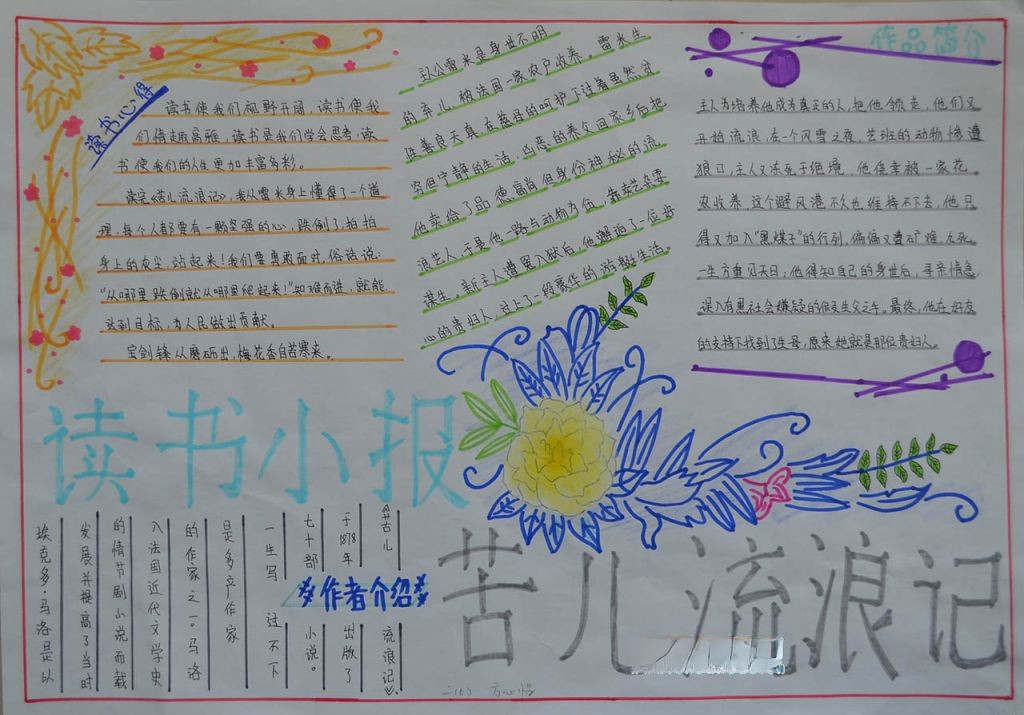 读书心得
读书使我们视野开阔，读书使我
们情趣高雅，读书是我们学会思考，读
书使我们的人生更加丰富多彩。
读完《苦儿流浪记》，我从雷米身上懂得了一个道
理，每个人都要有一颗坚强的心，跌倒了，拍拍
身上的灰尘，站起来！我们要勇敢面对，俗话说：
“从哪里跌倒就从哪里爬起来！”知难而进，就能
达到目标，为人民做出贡献。
宝剑锋从磨砺出，梅花香自苦寒来。
主人公雷米是身世不明
的弃儿，被法国一家农户收养。雷米生
性善良天真，在慈母的呵护下过着虽然贫
穷但宁静的生活，凶恶的养父回家乡后把
他卖给了品德高尚但身份神秘的流
浪艺人，于是他一路与动物为伍，靠卖艺杂耍
谋生。新主人遭冤入狱后，他邂逅了一位好
心的贵妇人，过上了一段豪华的游艇生活。
作品简介
主人为培养他成为真正的人，把他领走，他们又
开始流浪，在一个风雪之夜，艺班的动物惨遭
狼口，主人又冻死于绝境，他侥幸被一家花
农收养，这个避风港不久也维持不下去，他只
得又加入“黑煤子”的行列，偏偏又遭矿难，九死
一生方重见天日；他得知自己的身世后，寻亲情急
误入有黑社会嫌疑的假生父之手。最终，他在好友
的支持下找到了生母，原来她就是那位贵妇人。
读书小报
苦儿流浪记
作者介绍
埃克多·马洛是以
发展并提高了当时
的情节剧小说而载
入法国近代文学史
的作家之一。马洛
是多产作家
一生写过不下
七十部小说。
于1878年出版了
《苦儿流浪记》。
二(6) 方心怡